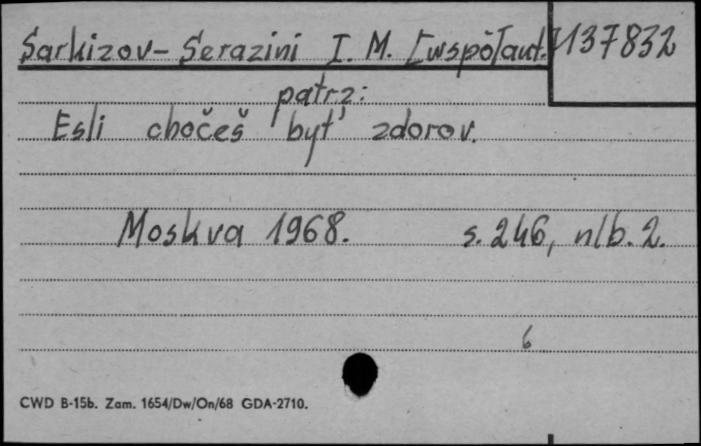 Sarkizov-Serazini I. M. [współaut.
1137832
patrz:
Esli chočeš być zdorov.
Moskva 1968. s. 246, nlb. 2.
6
CWD B-15b. Zam. 1654/Dw/On/68 GDA-2710.